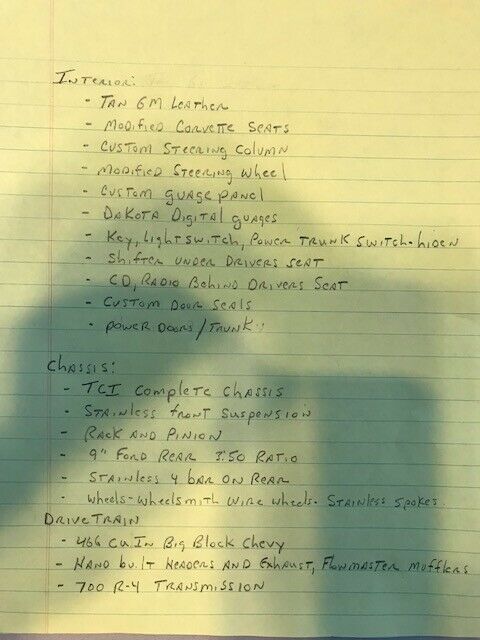 Interior:
- Tan GM Leather
- Modified Corvette Seats
- Custom Steering Column
- Modified Steering Wheel
- Custom guage panel
- Dakota Digital guages
- Key, Light switch, Power Trunk Switch-hiden
- Shifter under Drivers seat
- CD, Radio Behind Drivers Seat
- Custom Door Seals
- Power Doors/Trunk
Chassis:
- TCI Complete Chassis
- Stainless front Suspension
- Rack and Pinion
- 9" Ford Rear 3:50 Ratio
- Stainless 4 bar on Rear
- Wheels-Wheelsmith Wire Wheels- Stainless Spokes.
Drivetrain
- 466 Cu.In Big Block Chevy
- Hand built Headers and Exhaust, Flowmaster Mufflers
- 700 R-4 Transmission